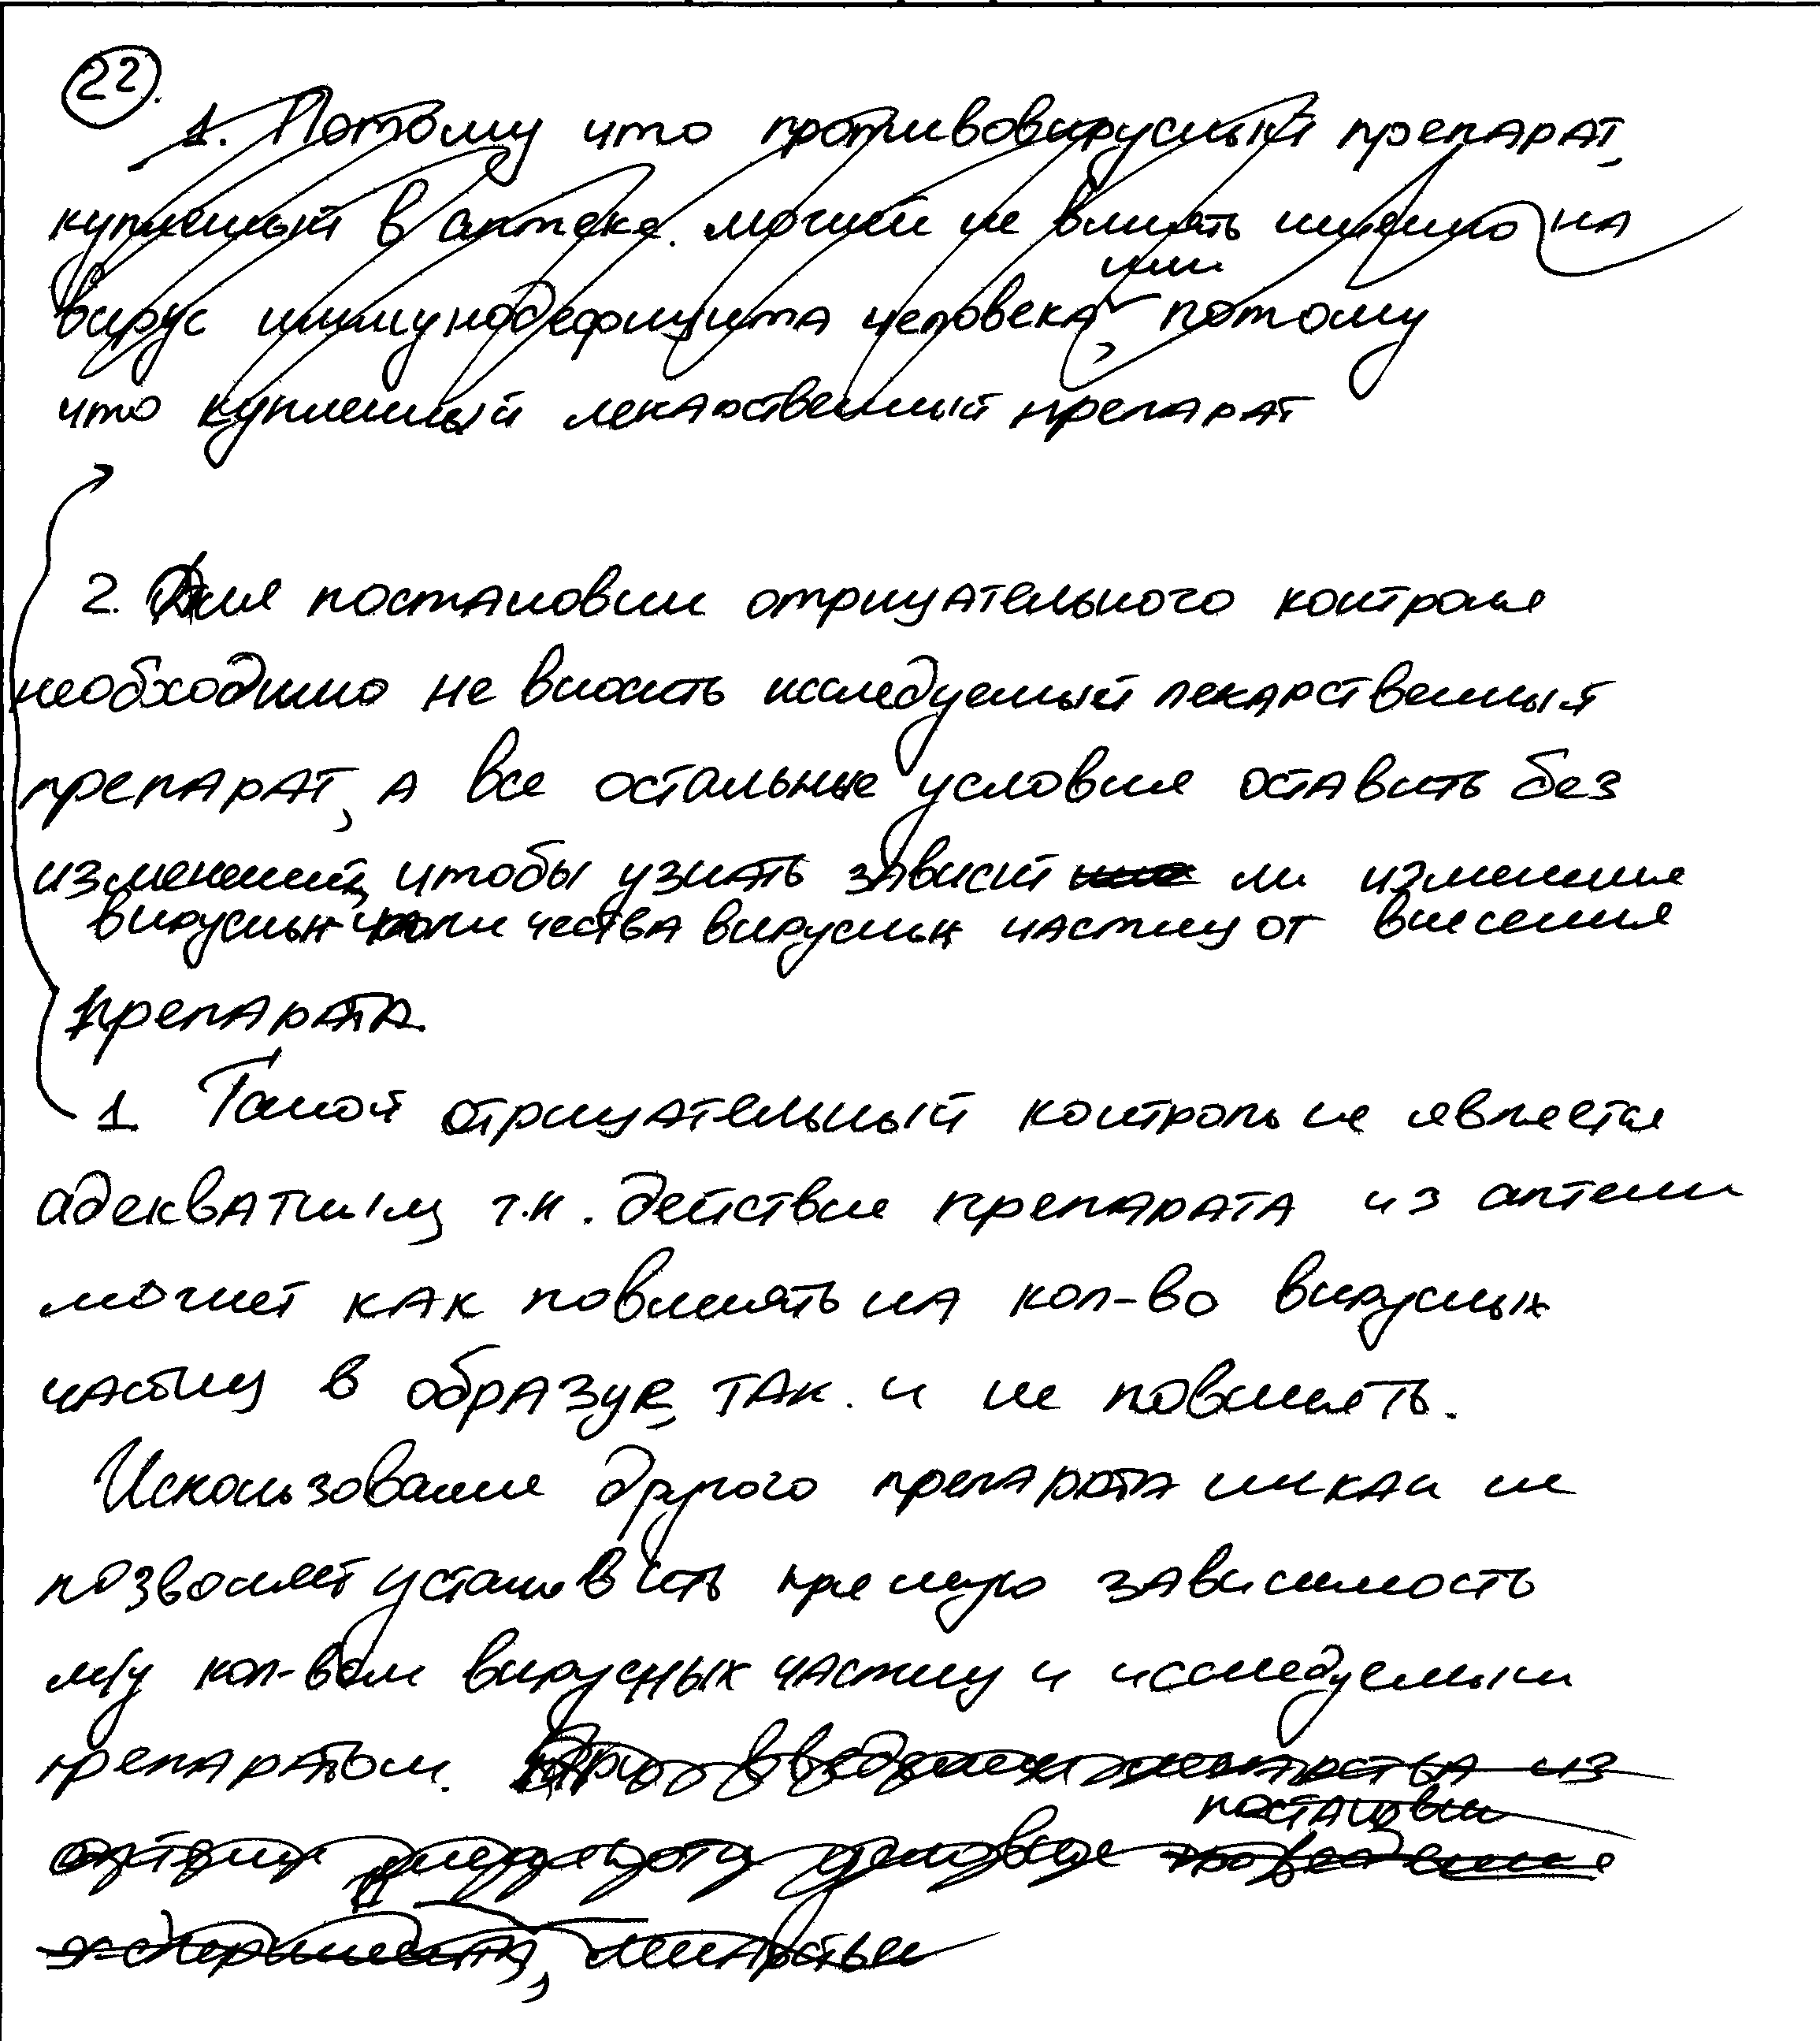 22.
1. Потому что противовирусный препарат,
купленный в аптеке может не влиять именно на
или
вирус иммунодефицита человека, потому
что купленный лекарственный препарат
2. Для постановки отрицательного контроля
необходимо не вносить исследуемый лекарственный
препарат, а все остальные условия оставить без
изменений, чтобы узнать зависит ли изменение
вирусных количества вирусных частиц от внесения
препарата.
1 Такой отрицательный контроль не является
адекватным т.к. действие препарата из аптеки
может как повлиять на кол-во вирусных
частиц в образце, так и не повлиять.
Использование другого препарата никак не
позволяет установить прямую зависимость
м/у кол-вом вирусных частиц и исследуемым
препаратом. При введении лекарства из
постановки
аптеки условие проведение
эксперимента, лекарства